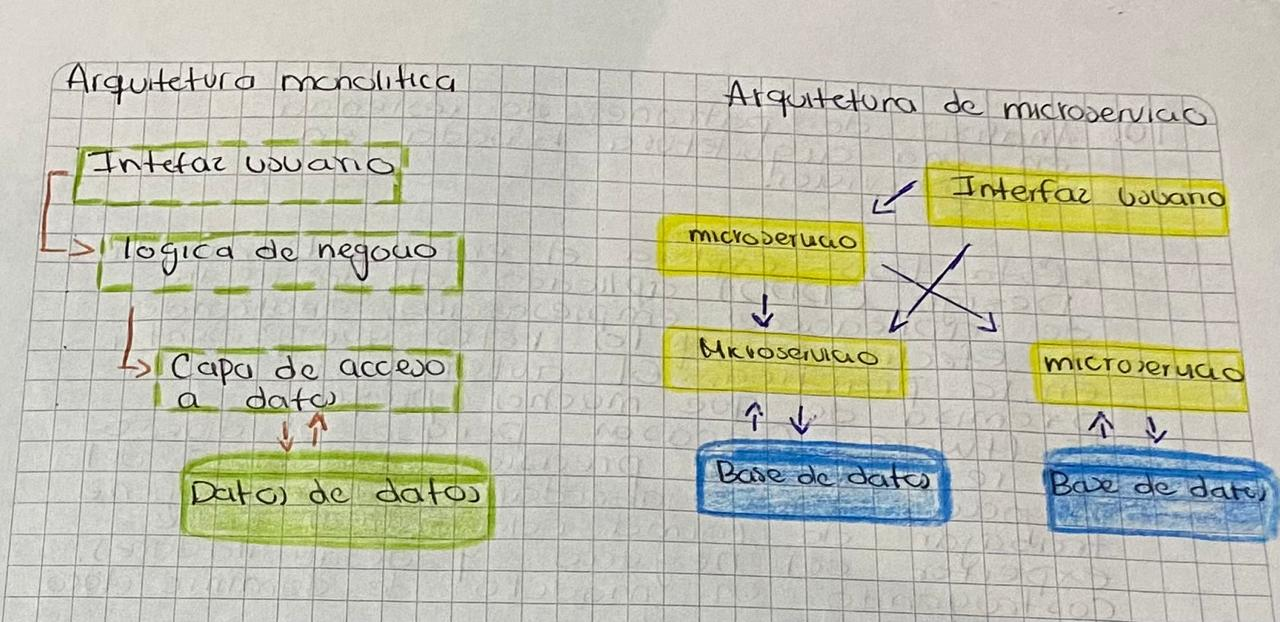 Arquitetura monolitica
Intefaz usuario
logica de negocio
Capa de acceso
a datos
Datos de datos
Arquitetura de microservicio
Interfaz usuario
microservicio
Microservicio
microservicio
Base de datos
Base de datos